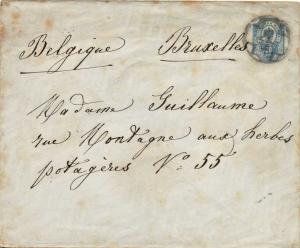 Belgique Bruxelles
Madame Guillaume
rue Montagne aux herbes
potagères No 55